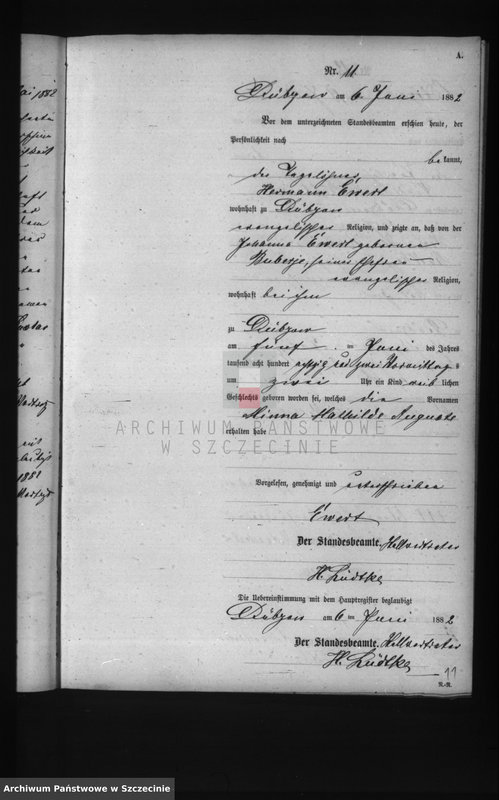 A.
Nr. 11.
Dübzow am 6. Juni 1882
Vor dem unterzeichneten Standesbeamten erschien heute, der
Persönlichkeit nach
bekannt,
der Tagelöhner
Hermann Ewert
wohnhaft zu Dübzow
evangelischer Religion, und zeigte an, daß von der
Johanna Ewert geborenen
seiner Ehefrau
evangelischer Religion,
wohnhaft bei ihm
zu Dübzow
am fünf ten Juni des Jahres
tausend acht hundert achtzig und zwei Vormittags
um zwei Uhr ein Kind weiblichen
Geschlechts geboren worden sei, welches die Vornamen
Minna Mathilde Auguste
erhalten habe
ARCHIWUM PAŃSTWOWE
W SZCZECINIE
Vorgelesen, genehmigt und unterschrieben
Ewert
Der Standesbeamte.
H. Lüdtke
Die Uebereinstimmung mit dem Hauptregister beglaubigt
Dübzow am 6 ten Juni 1882
Der Standesbeamte.
H. Lüdtke
11
R.-R.
Archiwum Państwowe w Szczecinie